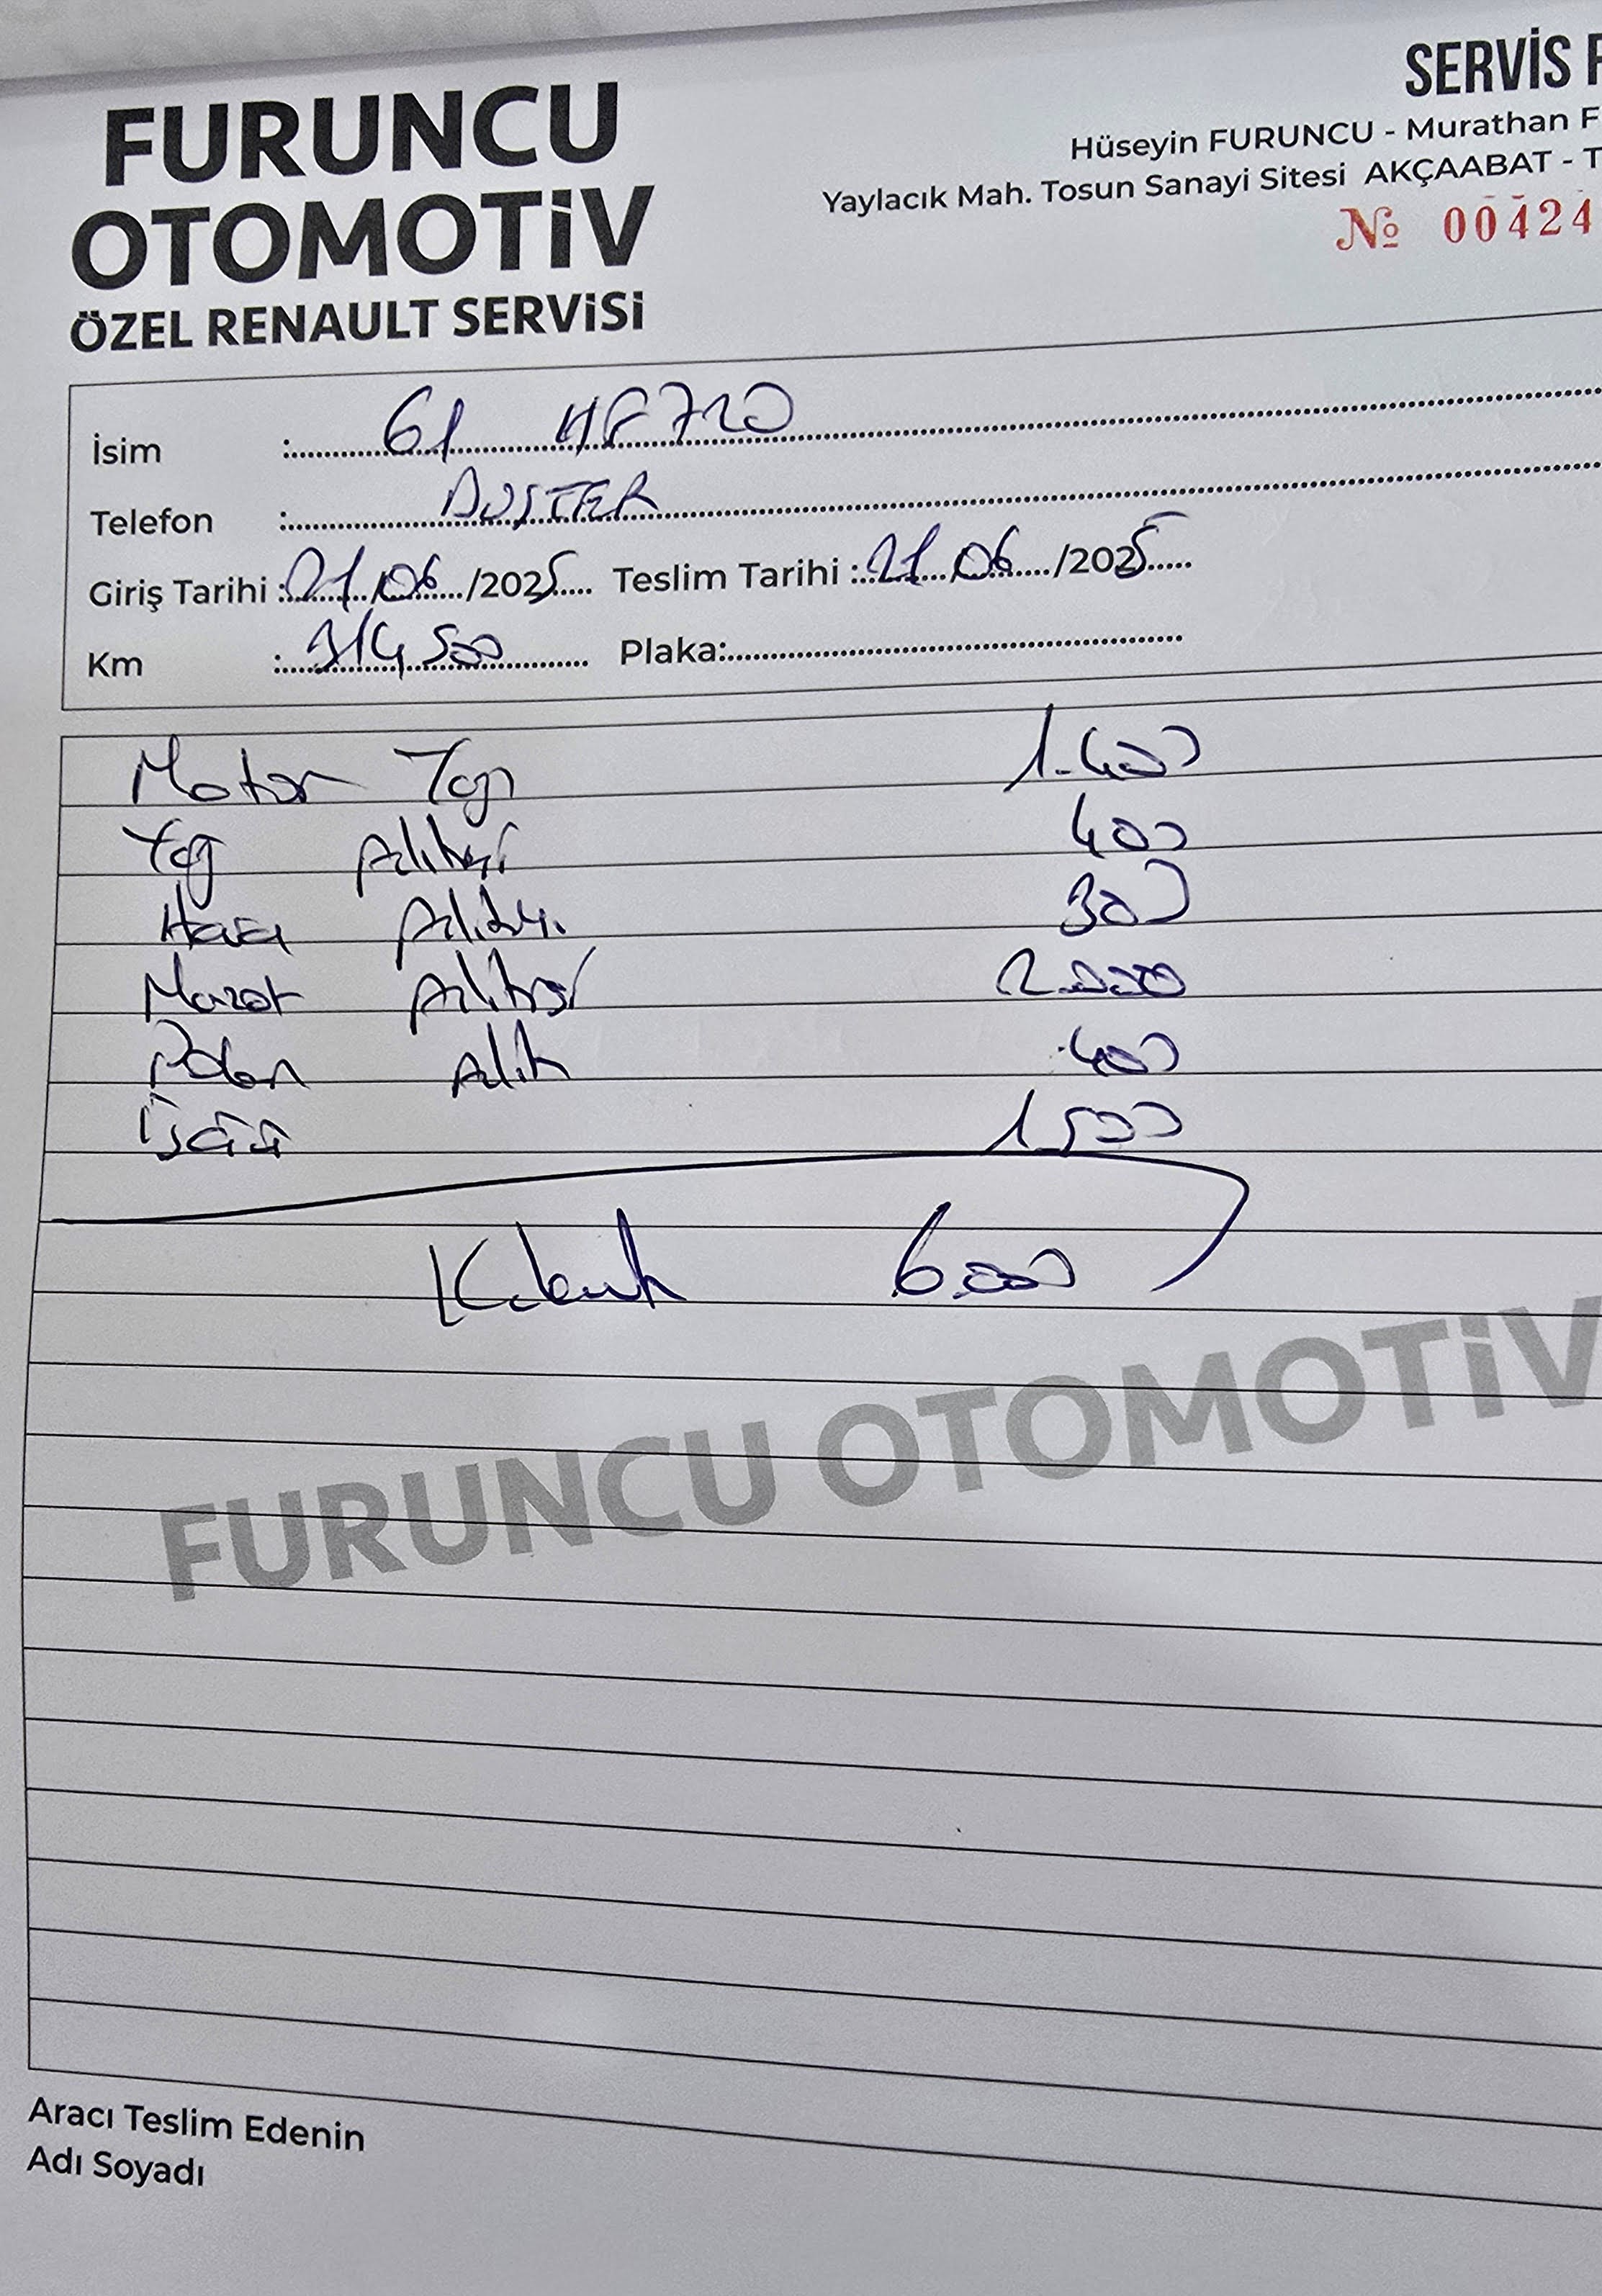 SERVİS
FURUNCU
OTOMOTİV
ÖZEL RENAULT SERVİSİ
Hüseyin FURUNCU - Murathan F
Yaylacık Mah. Tosun Sanayi Sitesi AKÇAABAT - T
№ 00424
İsim : 61
Telefon : DUSTER
Giriş Tarihi : 21/06/2025 Teslim Tarihi : 21.06/2025
Km : 314500 Plaka:
Motor Yağı 1.400
Yağ filitresi 400
Hava filitre 300
Mazot filitresi 2.000
Polen filit 400
İşçilik 1.500
6.000
FURUNCU OTOMOTİV
Aracı Teslim Edenin
Adı Soyadı